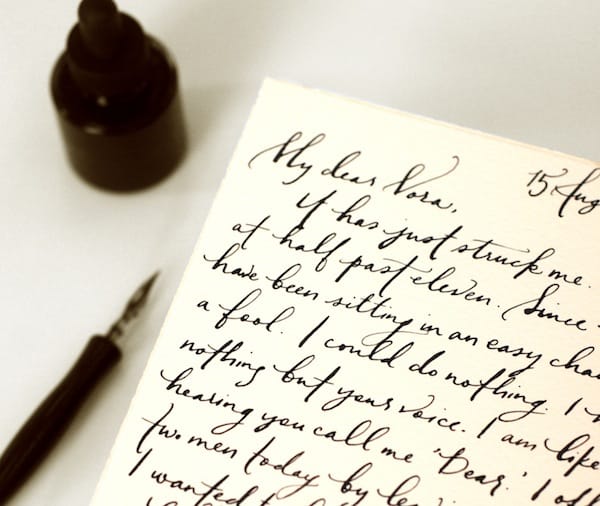 15 Aug
My dear Nora,
It has just struck me.
at half past eleven. Since
have been sitting in an easy chai
a fool. I could do nothing. I
nothing but your voice. I am like
hearing you call me 'Dear.' I off
two men today by le
I wanted to